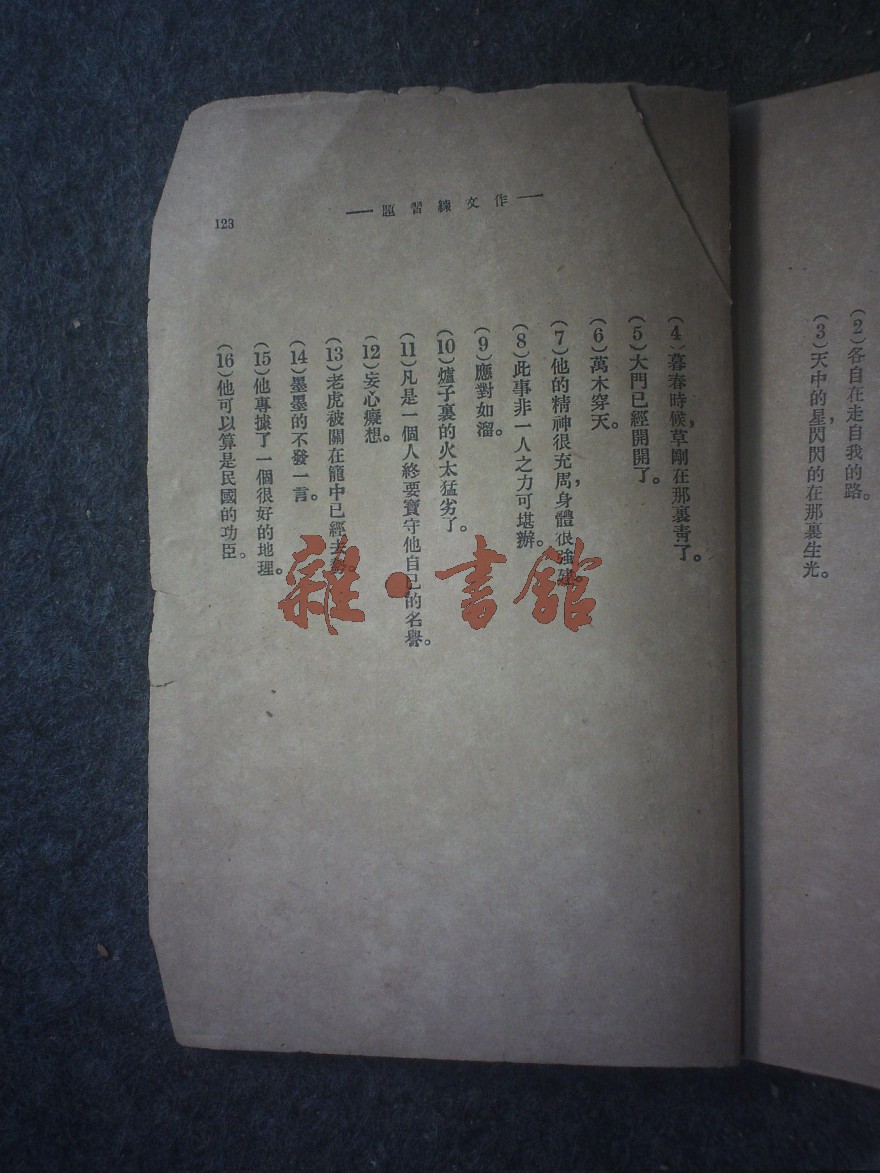 (2)各自在走自我的路。
(3)天中的星,閃閃的在那裏生光。
—作文練習題—
123
(4)暮春時候,草剛在那裏靑了。
(5)大門已經開開了。
(6)萬木穿天。
(7)他的精神很充周,身體很強建。
(8)此事非一人之力可堪辦。
(9)應對如溜。
(10)爐子裏的火太猛劣了。
(11)凡是一個人終要寶守他自己的名譽。
(12)妄心癡想。
(13)老虎被關在籠中已經去
(14)墨墨的不發一言。
(15)他專據了一個很好的地理。
(16)他可以算是民國的功臣。
雜·書館